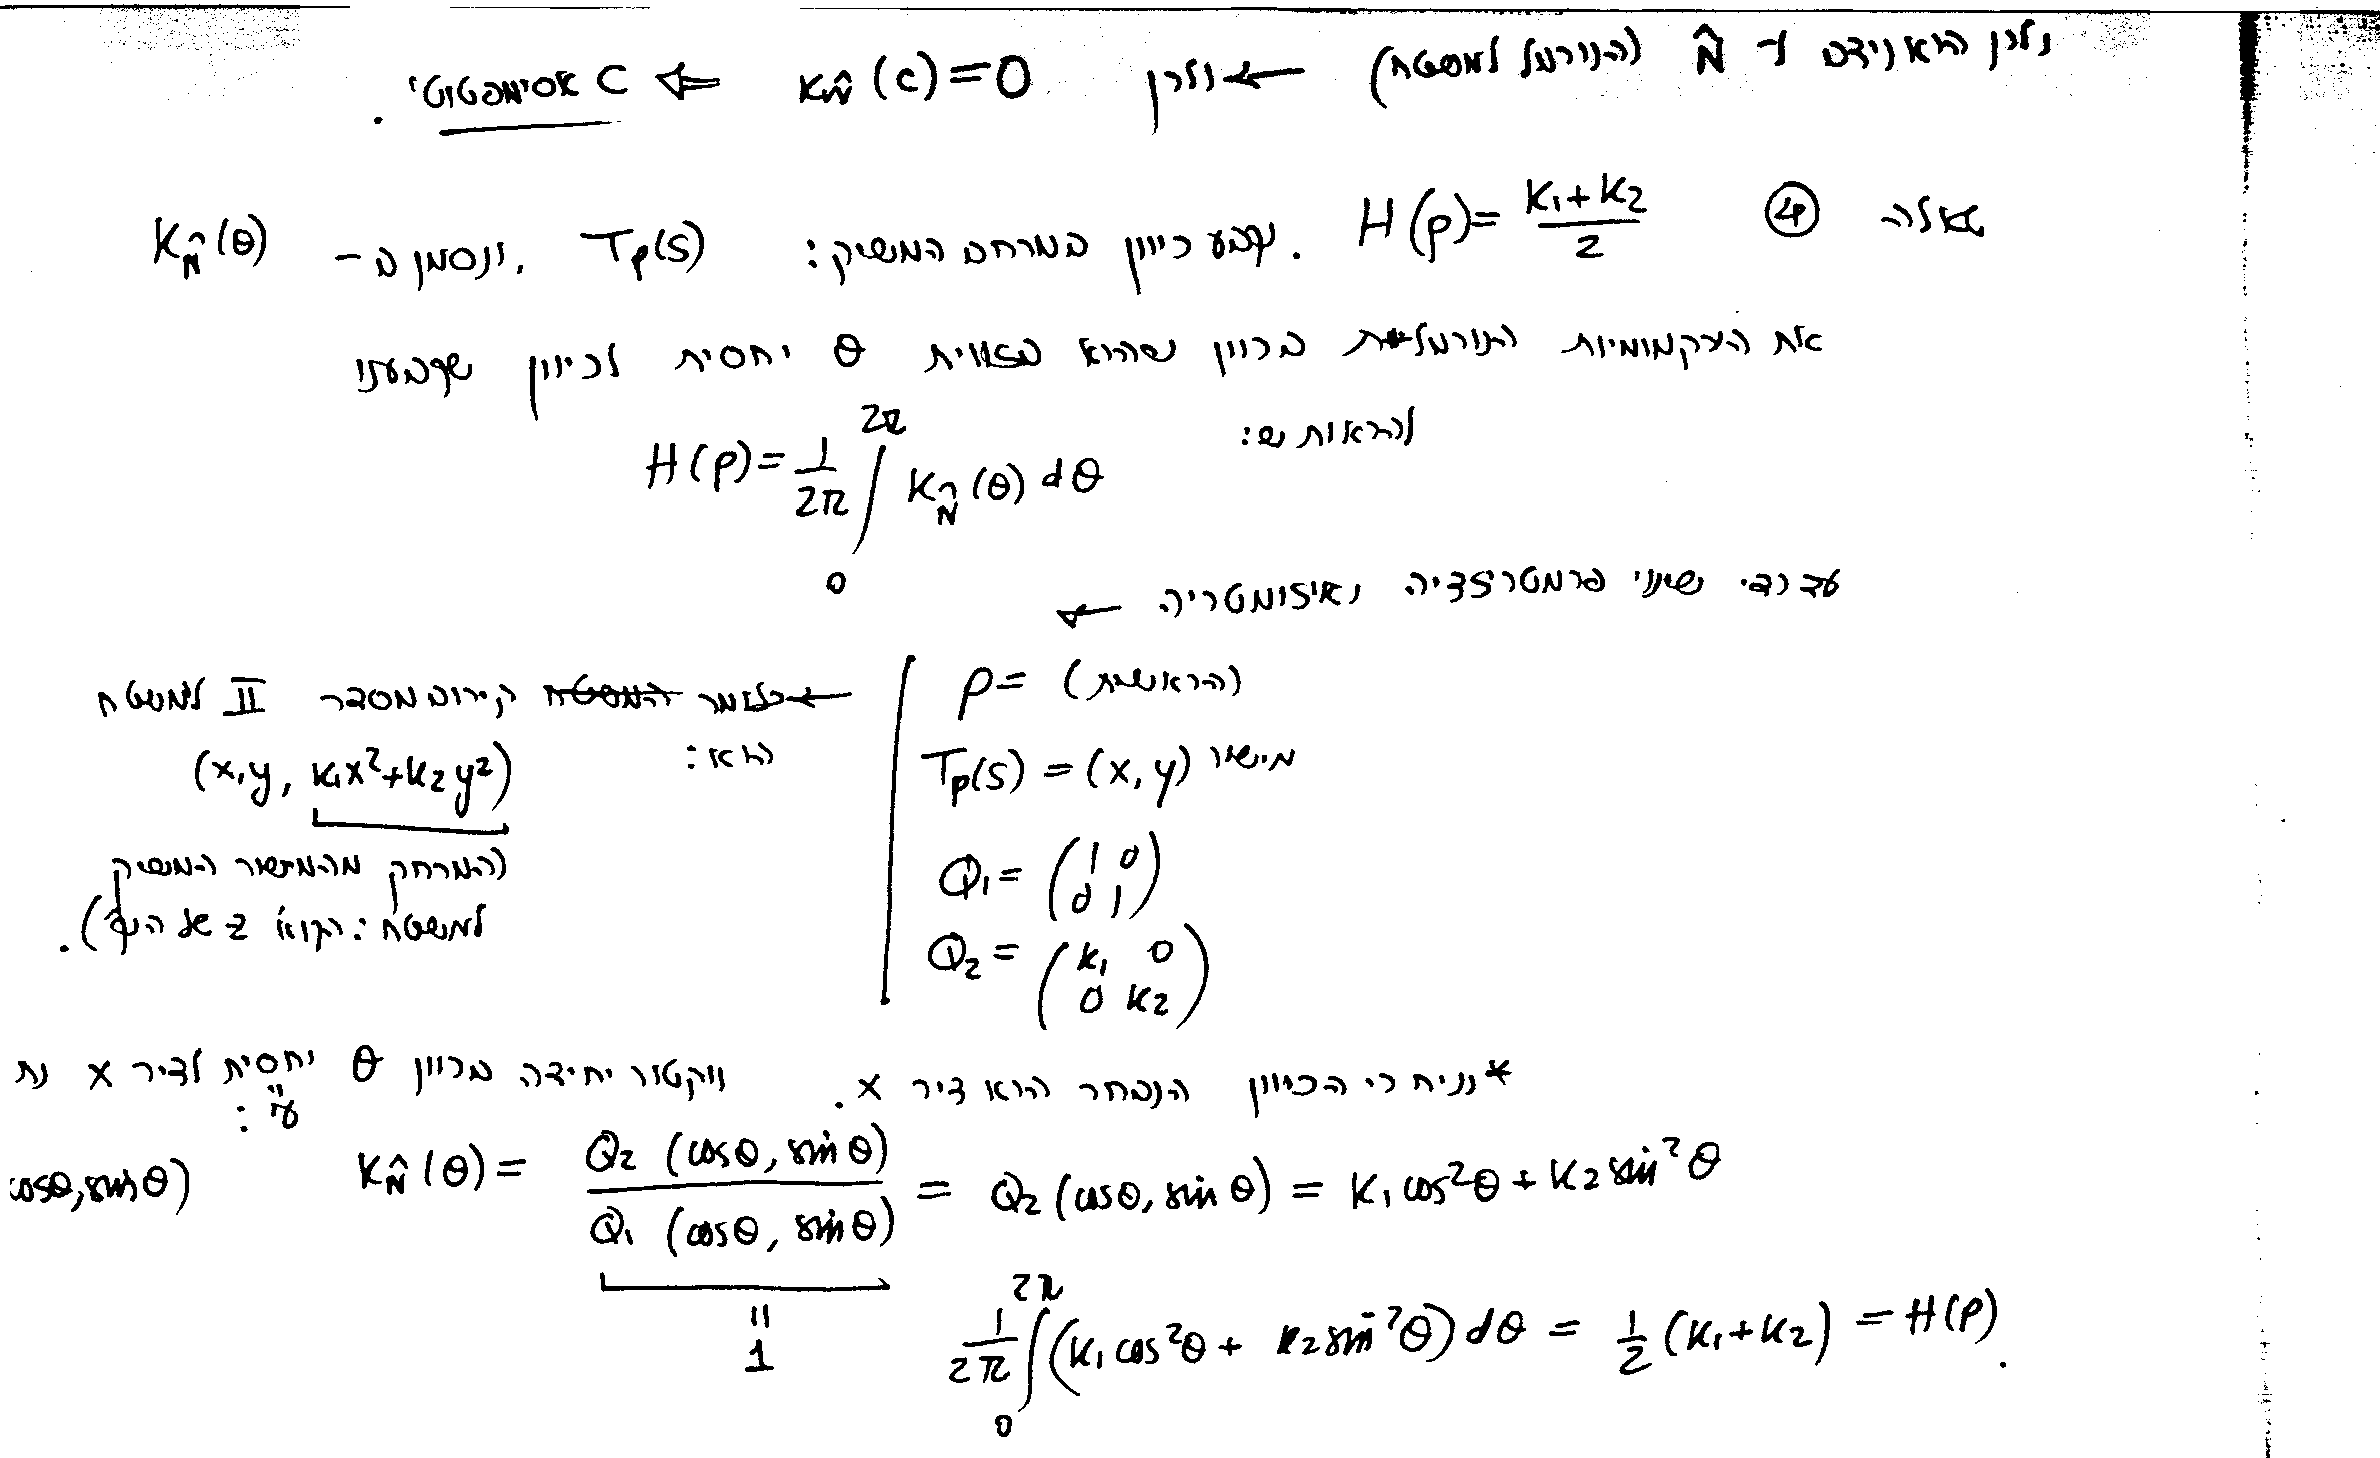 ולכן הוא ניצב ל- N̂ (הנורמל למשטח) ← ולכן k_N̂(c)=0 ⇐ c אסימפטוטי.
שאלה ④ H(p)= (k₁+k₂)/2 . נקבע כיוון במרחב המשיק: Tp(S) , ונסמן ב- k_N̂(θ)
את העקמומיות הנורמלית בכוון שהוא בזווית θ יחסית לכיוון שקבענו
להראות ש:
H(p)= 1/2π ∫₀^2π k_N̂(θ) dθ
עד כדי שינוי פרמטריזציה ואיזומטריה ←
p= (הראשית) ← כלומר קירוב מסדר II למשטח
Tp(S) = (x,y) מישור הוא: (x,y, k₁x²+k₂y²)
Q₁= (1 0 / 0 1) (המרחק מהמישור המשיק
למשטח: הקוא' z של הנק').
Q₂= (k₁ 0 / 0 k₂)
* נניח כי הכיוון הנבחר הוא ציר x. ווקטור יחידה בכוון θ יחסית לציר x
ע"י:
cosθ, sinθ) k_N̂(θ)= Q₂(cosθ, sinθ) / Q₁(cosθ, sinθ) = Q₂(cosθ, sinθ) = k₁cos²θ + k₂sin²θ
"
1
1/2π ∫₀^2π (k₁cos²θ + k₂sin²θ)dθ = 1/2 (k₁+k₂) = H(p).